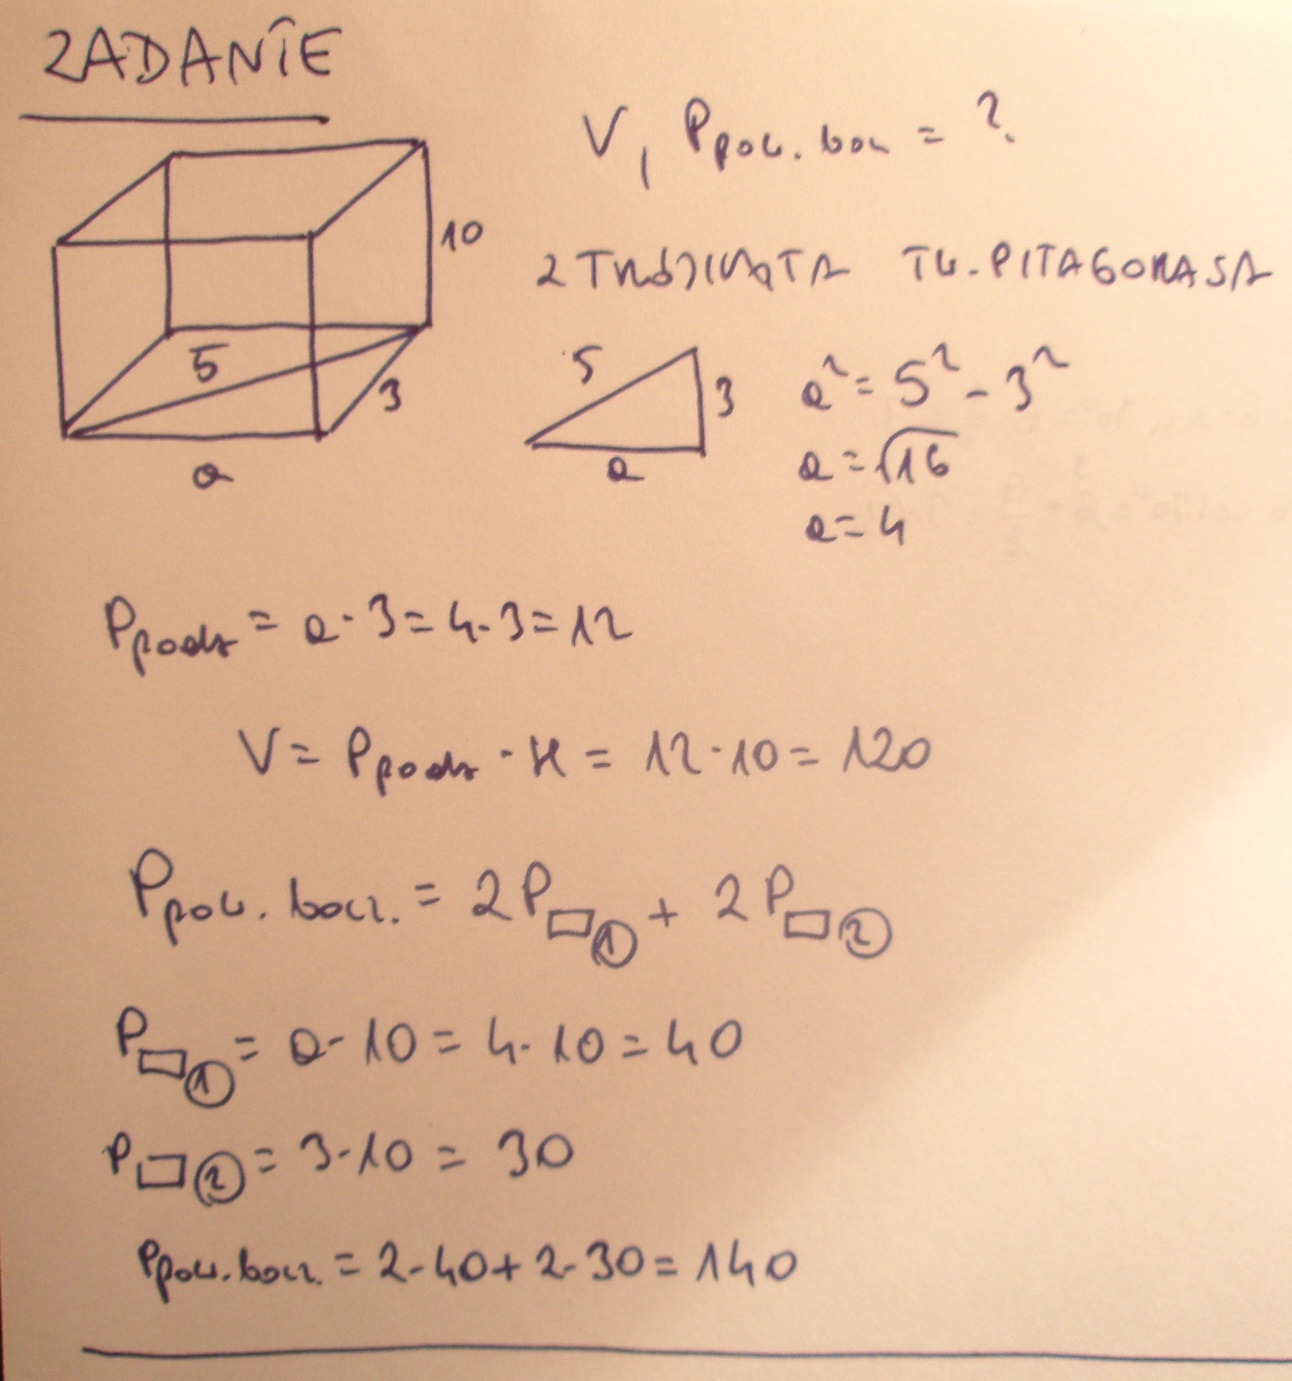 ZADANIE
V, Ppow. bocz = ?
10
5
3
a
Z TRÓJKĄTA TW. PITAGORASA
5
3
a
a² = 5² - 3²
a = √16
a = 4
Ppodst = a · 3 = 4 · 3 = 12
V = Ppodst · H = 12 · 10 = 120
Ppow. bocz. = 2P▭① + 2P▭②
P▭① = a · 10 = 4 · 10 = 40
P▭② = 3 · 10 = 30
Ppow. bocz. = 2 · 40 + 2 · 30 = 140